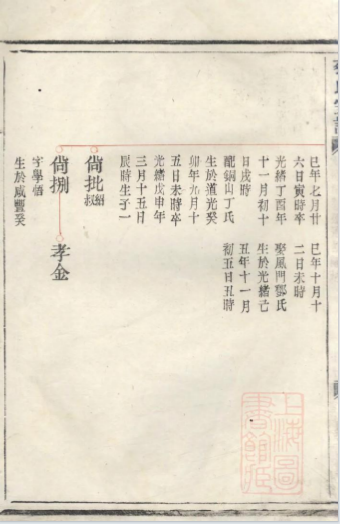 巳年七月廿
六日寅時卒
光緒丁酉年
十一月初十
日戌時
配銅山丁氏
生於道光癸
卯年九月十
五日未時卒
光緒戊申年
三月十五日
辰時生子一
尙批
紹叔
尙捌
字學悟
生於咸豐癸
巳年十月十
二日未時
娶風門鄧氏
生於光緒己
丑年十一月
初五日丑時
孝金
上海圖書館藏